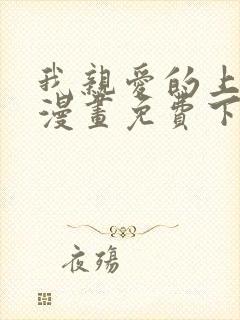 我親愛的上
漫畫免費下
夜殤